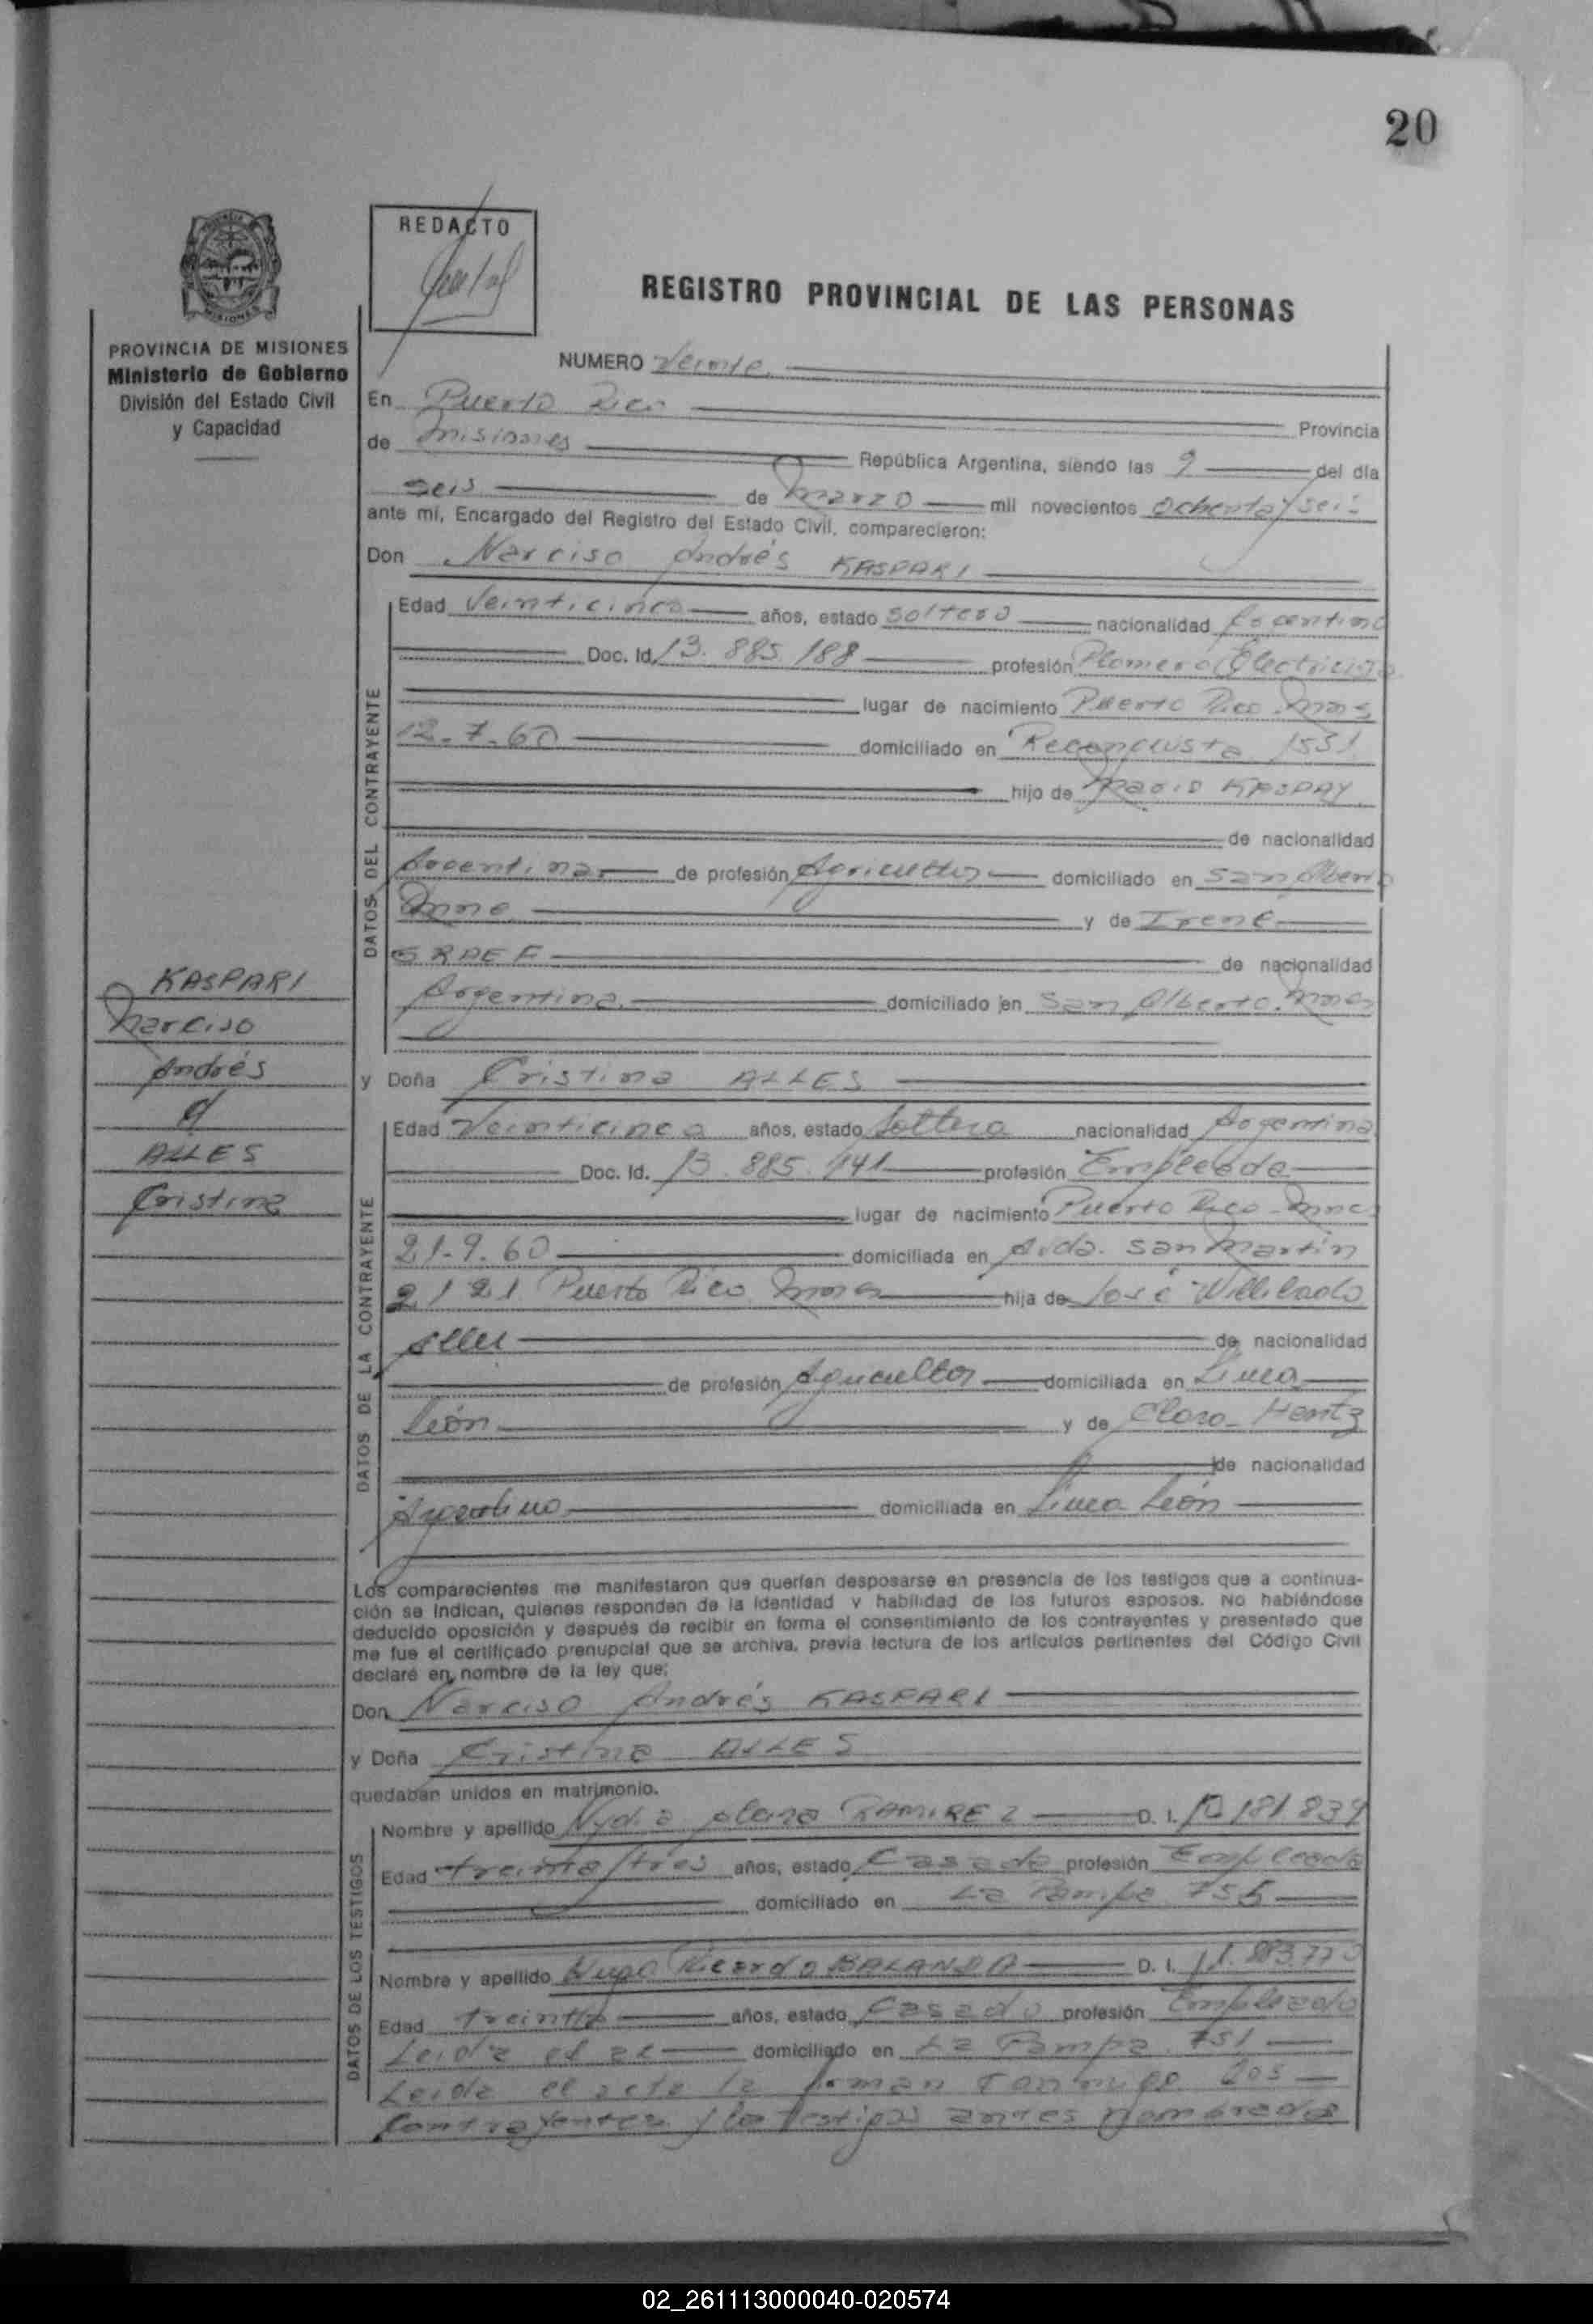 20
REDACTO
REGISTRO PROVINCIAL DE LAS PERSONAS
PROVINCIA DE MISIONES
Ministerio de Gobierno
División del Estado Civil
y Capacidad
NUMERO Veinte.
En Puerto Rico
Provincia
de Misiones República Argentina, siendo las 9 del día
seis de Marzo mil novecientos ochenta y seis
ante mí, Encargado del Registro del Estado Civil, comparecieron:
Don Narciso Andrés KASPARI
DATOS DEL CONTRAYENTE
Edad Veinticinco años, estado soltero nacionalidad Argentino
Doc. Id. 13.885.188 profesión Plomero Electricista
lugar de nacimiento Puerto Rico Mnes
12-7-60 domiciliado en Reconquista 1531
hijo de KASPAY
de nacionalidad
Argentina de profesión Agricultor domiciliado en San Alberto
y de Irene
GRAEF de nacionalidad
Argentina domiciliado en San Alberto. Mnes
KASPARI
Narciso
Andrés
c/
ALLES
Cristina
y Doña Cristina ALLES
DATOS DE LA CONTRAYENTE
Edad Veinticinco años, estado Soltera nacionalidad Argentina
Doc. Id. 13.885.141 profesión Empleada
lugar de nacimiento Puerto Rico Mnes
21-9-60 domiciliada en Avda. San Martín
2121 Puerto Rico Mnes hija de José Willibaldo
Alles de nacionalidad
de profesión Agricultor domiciliada en Línea
León y de Clara Hentz
de nacionalidad
Argentina domiciliada en Línea León
Los comparecientes me manifestaron que querían desposarse en presencia de los testigos que a continua-
ción se indican, quienes responden de la identidad y habilidad de los futuros esposos. No habiéndose
deducido oposición y después de recibir en forma el consentimiento de los contrayentes y presentado que
me fue el certificado prenupcial que se archiva, previa lectura de los artículos pertinentes del Código Civil
declaré en nombre de la ley que:
Don Narciso Andrés KASPARI
y Doña Cristina ALLES
quedaban unidos en matrimonio.
DATOS DE LOS TESTIGOS
Nombre y apellido Nydia RAMIREZ D. I. 10.181.839
Edad treinta y tres años, estado Casada profesión Empleada
domiciliado en La Pampa 755
Nombre y apellido Hugo Ricardo BALANDA D. I. 11.883.770
Edad treinta años, estado Casado profesión Empleado
Leida el ac domiciliado en La Pampa 751
Leida el acta la firman conmigo los
contrayentes y los testigos antes nombrados
02_261113000040-020574